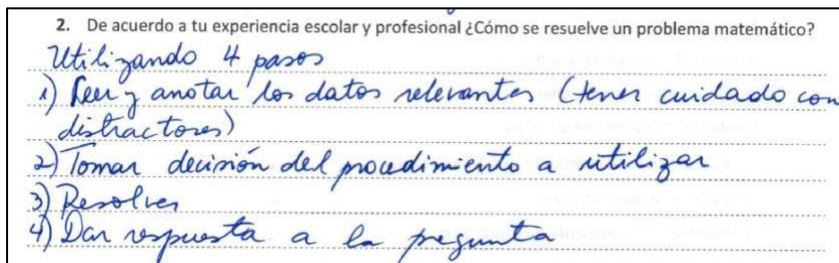 2. De acuerdo a tu experiencia escolar y profesional ¿Cómo se resuelve un problema matemático?
Utilizando 4 pasos
1) Leer y anotar los datos relevantes (tener cuidado con
distractores)
2) Tomar decisión del procedimiento a utilizar
3) Resolver
4) Dar respuesta a la pregunta